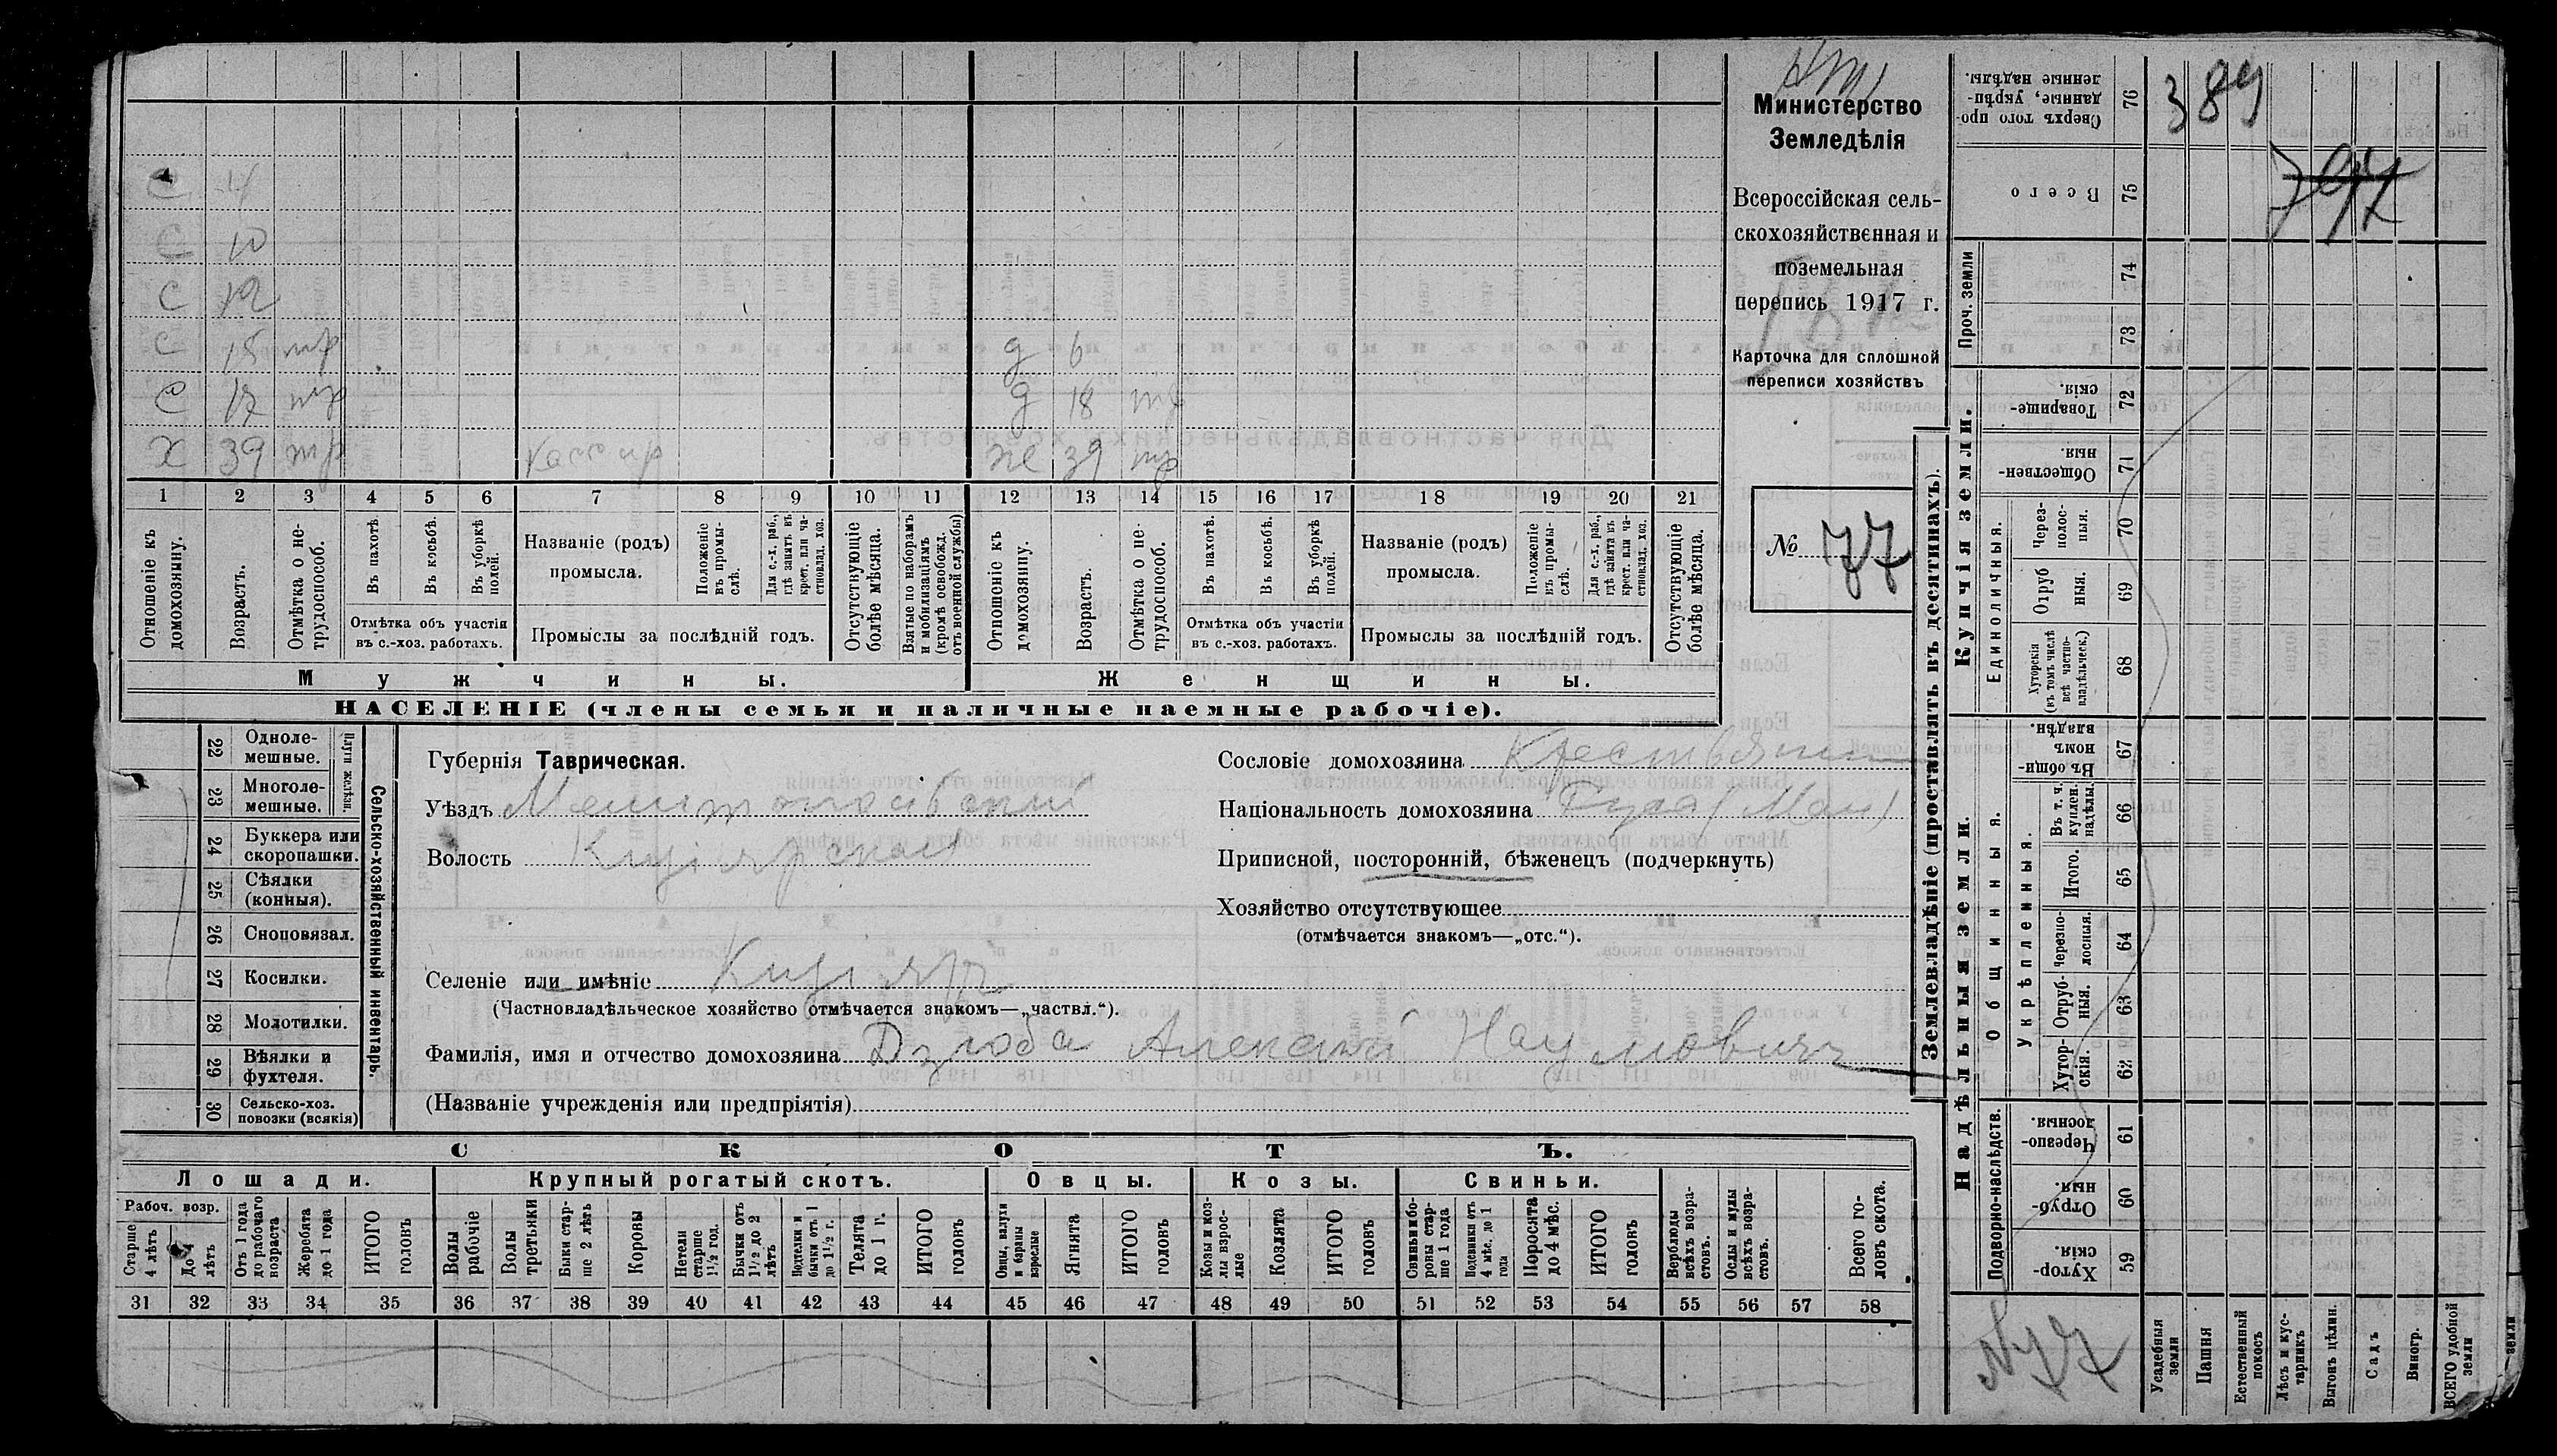 С 4
С 10
С 12
С 15 тр
С 17 тр
Х 39 тр кассир
д 6
д 18 тр
же 39 тр
1 2 3 4 5 6 7 8 9 10 11 12 13 14 15 16 17 18 19 20 21
Отношеніе къ домохозяину.
Возрастъ.
Отмѣтка о не-трудоспособ.
Въ пахотѣ.
Въ косьбѣ.
Въ уборкѣ полей.
Отмѣтка объ участіи въ с.-хоз. работахъ.
Названіе (родъ) промысла.
Положеніе въ промы-слѣ.
Для с.-х. раб., гдѣ занятъ въ крест. или ча-стновлад. хоз.
Промыслы за послѣдній годъ.
Отсутствующіе болѣе мѣсяца.
Взятые по наборамъ и мобилизаціямъ (кромѣ освобожд. отъ военной службы)
Отношеніе къ домохозяину.
Возрастъ.
Отмѣтка о не-трудоспособ.
Въ пахотѣ.
Въ косьбѣ.
Въ уборкѣ полей.
Отмѣтка объ участіи въ с.-хоз. работахъ.
Названіе (родъ) промысла.
Положеніе въ промы-слѣ.
Для с.-х. раб., гдѣ занята въ крест. или ча-стновлад. хоз.
Промыслы за послѣдній годъ.
Отсутствующіе болѣе мѣсяца.
Мужчины.
Женщины.
НАСЕЛЕНІЕ (члены семьи и наличные наемные рабочіе).
Министерство
Земледѣлія
Всероссійская сель-
скохозяйственная и
поземельная
перепись 1917 г.
Карточка для сплошной
переписи хозяйствъ
№ 77
22 Одноле-мешные.
23 Многоле-мешные.
Плуги желѣзн.
24 Буккера или скоропашки.
25 Сѣялки (конныя).
26 Сноповязал.
27 Косилки.
28 Молотилки.
29 Вѣялки и фухтеля.
30 Сельско-хоз. повозки (всякія)
Сельско-хозяйственный инвентарь.
Губернія Таврическая.
Уѣздъ Мелитопольскій
Волость Кизіярская
Селеніе или имѣніе Кизіяръ
(Частновладѣльческое хозяйство отмѣчается знакомъ—„частвл.“).
Фамилія, имя и отчество домохозяина Дзюба Алексѣй Наумовичъ
(Названіе учрежденія или предпріятія)
Сословіе домохозяина Крестьянинъ
Національность домохозяина
Приписной, посторонній, бѣженецъ (подчеркнуть)
Хозяйство отсутствующее
(отмѣчается знакомъ—„отс.“).
СКОТЪ.
Лошади. Крупный рогатый скотъ. Овцы. Козы. Свиньи.
Рабоч. возр.
Старше 4 лѣтъ
До 4 лѣтъ
Отъ 1 года до рабочаго возраста
Жеребята до 1 года
ИТОГО головъ
Волы рабочіе
Волы третьяки
Быки стар-ше 2 лѣтъ
Коровы
Нетели старше 1½ год.
Бычки отъ 1½ до 2 лѣтъ
Подтелки и бычки отъ 1 до 1½ г.
Телята до 1 г.
ИТОГО головъ
Овцы, валухи и бараны взрослые
Ягнята
ИТОГО головъ
Козы и коз-лы взрос-лые
Козлята
ИТОГО головъ
Свиньи и бо-ровы стар-ше 1 года
Подсвинки отъ 4 мѣс. до 1 года
Поросята до 4 мѣс.
ИТОГО головъ
Верблюды всѣхъ возра-стовъ.
Ослы и мулы всѣхъ возра-стовъ.
Всего го-ловъ скота.
31 32 33 34 35 36 37 38 39 40 41 42 43 44 45 46 47 48 49 50 51 52 53 54 55 56 57 58
Землевладѣніе (проставлять въ десятинахъ).
Надѣльныя земли.
Купчія земли.
Проч. земли
Сверхъ того про-данные, укрѣп-ленные надѣлы. 76
Всего 75
74
73
Товарище-скія. 72
Обществен-ныя. 71
Единоличныя.
Через-полос-ныя. 70
Отруб ныя. 69
Хуторскія (въ томъ числѣ всѣ частно-владѣльческ.) 68
Общинныя.
Въ общи-номъ владѣн. 67
Укрѣпленныя.
Въ т. ч. куплен. надѣлы. 66
Итого. 65
Черезпо-лосныя. 64
Отруб-ныя. 63
Хутор-скія. 62
Подворно-наслѣдств.
Черезпо-лосныя. 61
Отруб-ныя. 60
Хутор-скія. 59
389
797
№ 77
Усадебныя земли
Пашня
Естественный покосъ
Лѣсъ и кус-тарникъ
Выгонъ цѣлин.
Садъ
Виногр.
ВСЕГО удобной земли
земли